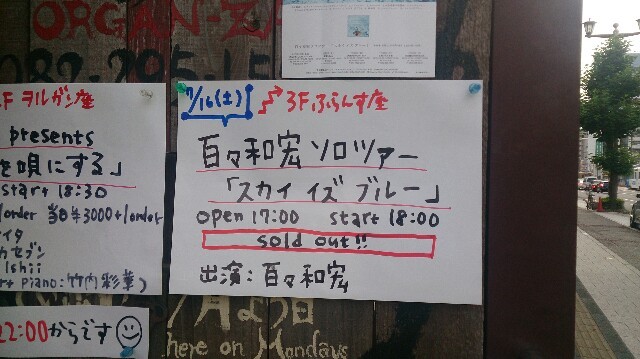 ORGAN-ZA
082-295-15
Fヲルガン座
presents
を唄にする」
start 18:30
/order 当日¥3000+1order
イタ
カセブン
Ishii
rt Piano:竹内彩華)
22:00からです
7/16(土) 3Fふらんす座
百々和宏ソロツアー
「スカイイズブルー」
open 17:00 start 18:00
sold out!!
出演:百々和宏
月25日
here on Mondays